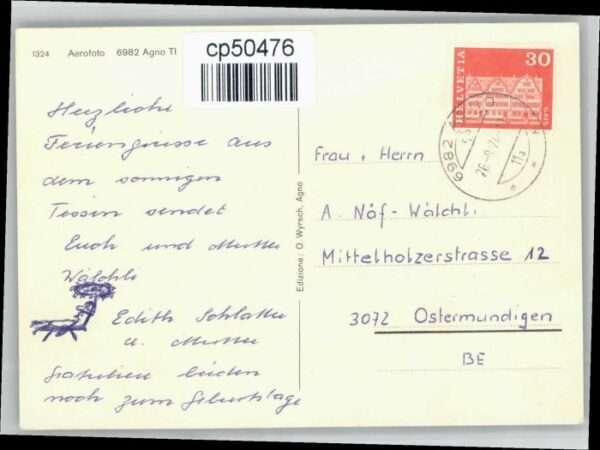 1324 Aerofoto 6982 Agno TI
cp50476
HELVETIA 30
6982
26.-9.74.-11
11a
Herzliche
Feriengrüsse aus
dem sonnigen
Tessin sendet
Euch und Mutter
Wälchli
Edith Schlatter
u. Mutter
Gratulieren beiden
noch zum Geburtstage
Edizione: O. Wyrsch, Agno
Frau + Herrn
A. Näf - Wälchli
Mittelholzerstrasse 12
3072 Ostermundigen
BE